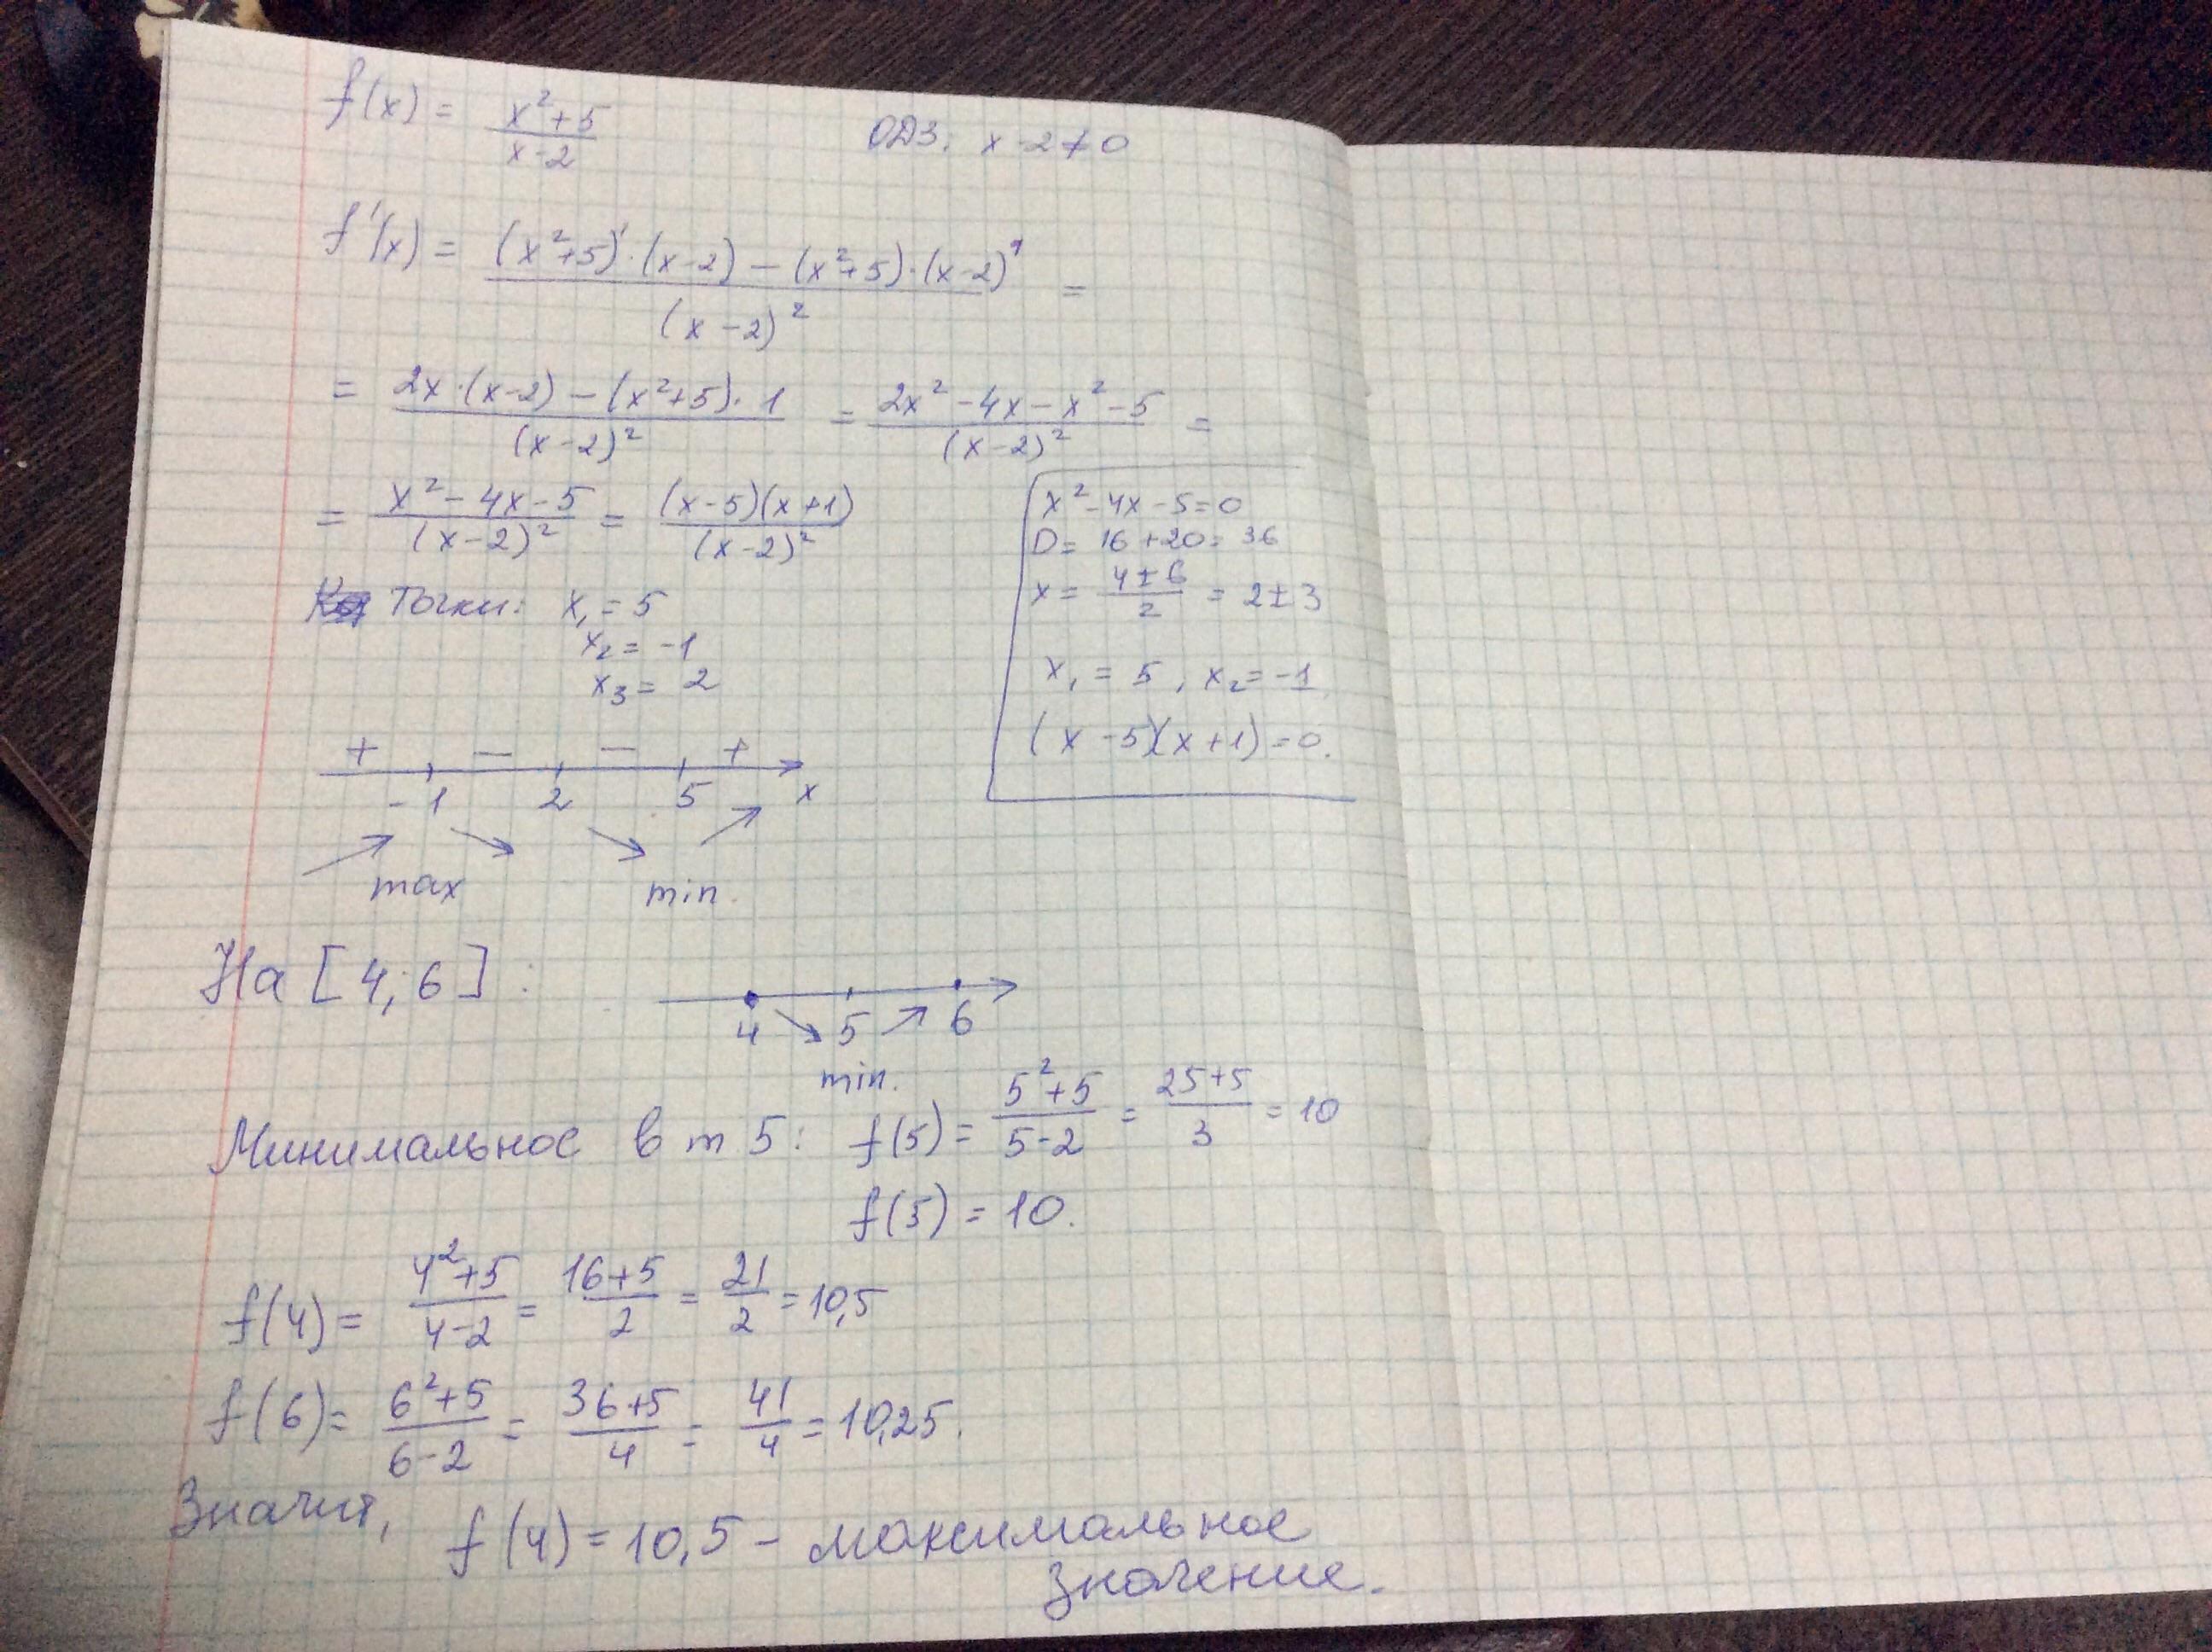 f(x) = (x²+5)/(x-2)   ОДЗ: x-2≠0
f'(x) = ((x²+5)'·(x-2) - (x²+5)·(x-2)')/(x-2)² =
= (2x·(x-2) - (x²+5)·1)/(x-2)² = (2x²-4x-x²-5)/(x-2)² =
= (x²-4x-5)/(x-2)² = (x-5)(x+1)/(x-2)²
x²-4x-5=0
D= 16+20= 36
x = (4±6)/2 = 2±3
x₁ = 5, x₂=-1
(x-5)(x+1)=0.
Точки: x₁ = 5
x₂ = -1
x₃ = 2
+ — — +
-1 2 5 x
max min.
На [4; 6]:
4 5 6
min.
Минимальное в т 5: f(5) = (5²+5)/(5-2) = (25+5)/3 = 10
f(5) = 10.
f(4) = (4²+5)/(4-2) = (16+5)/2 = 21/2 = 10,5
f(6) = (6²+5)/(6-2) = (36+5)/4 = 41/4 = 10,25.
Значит, f(4) = 10,5 - максимальное
значение.